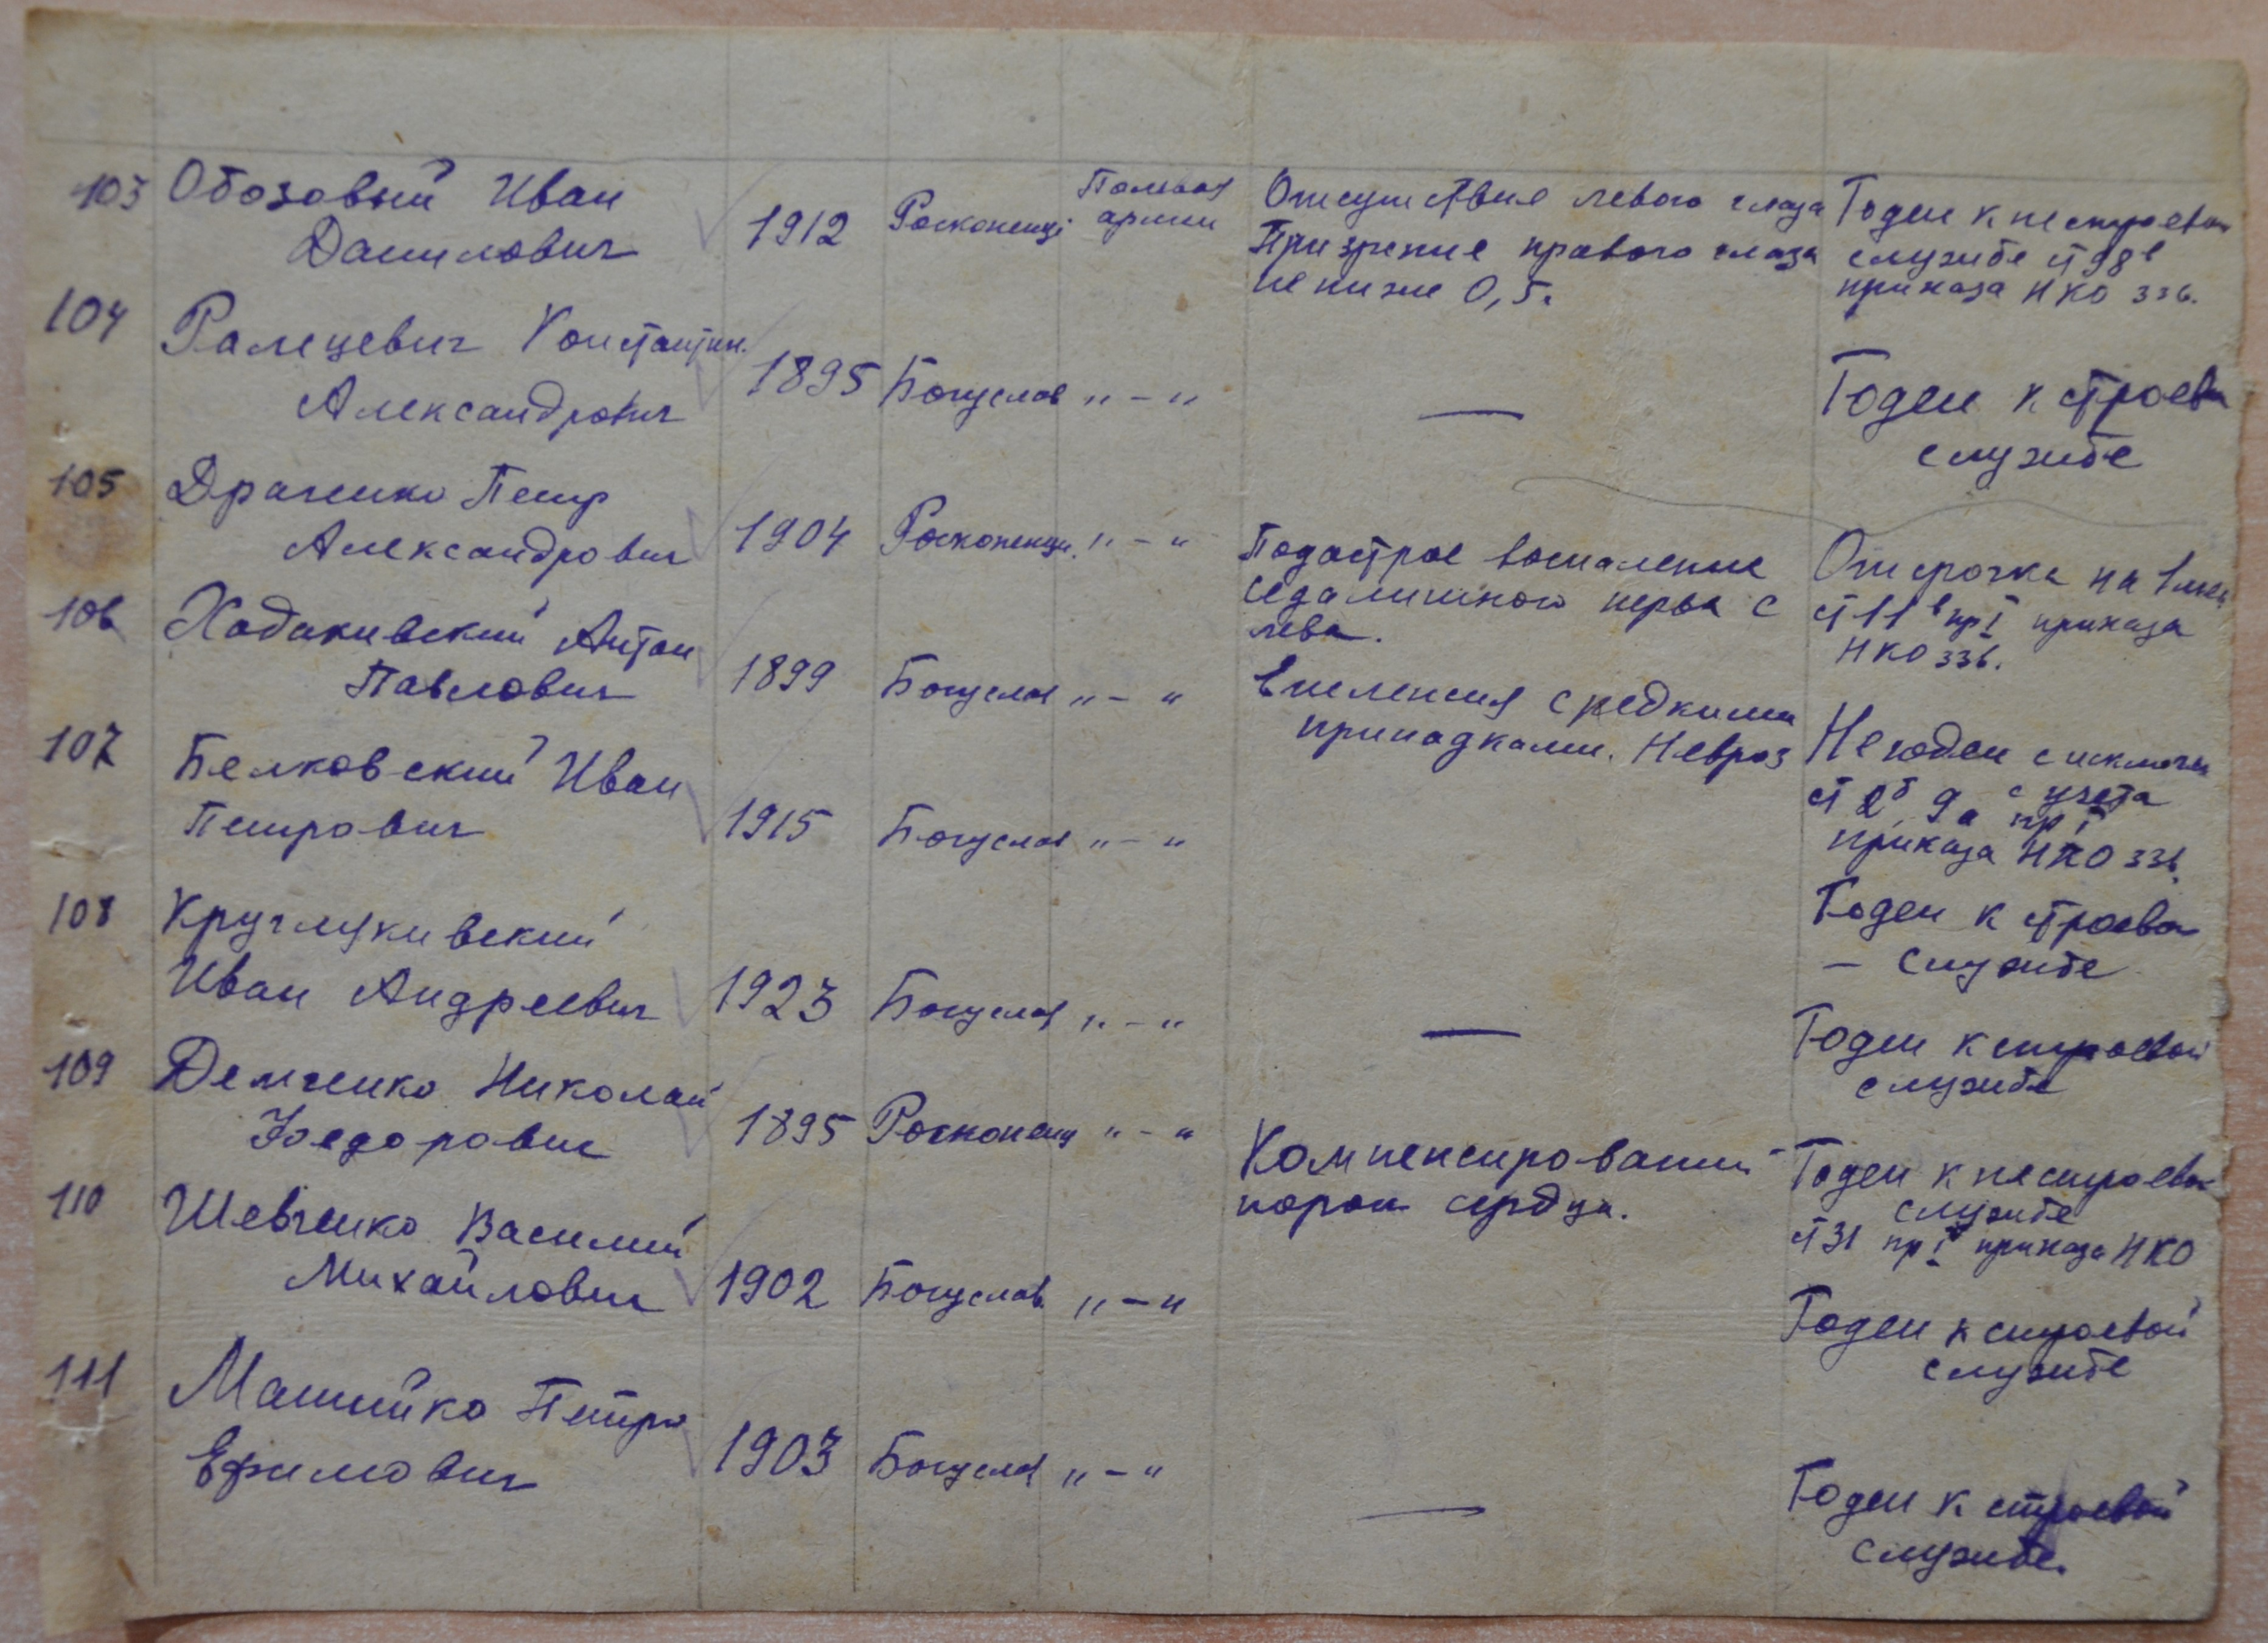 103 Обозовый Иван Данилович 1912 Росконенці Полевая армии Отсутствие левого глаза При зрение правого глаза не ниже 0,5. Годен к нестроевой службе ст 98в приказа НКО 336.
104 Константин. Александрович 1895 Богуслав „ – “ — Годен к строевой службе
105 Драченко Петр Александрович 1904 Росконенци. „ – “ Подострое воспаление седалишного нерва с лева. Отсрочка на 1 мес ст 11в пр I приказа НКО 336.
106 Ходакивский Антон Павлович 1899 Богуслав „ – “ Епилепсия с редкими припадками. Невроз Не годен с исключен с учета ст 2б, 9а пр I приказа НКО 336.
107 Белковский Иван Петрович 1915 Богуслав „ – “ Годен к строевой – службе
108 Круглякивский Иван Андреевич 1923 Богуслав „ – “ — Годен к строевой службе
109 Демченко Николай Федорович 1895 Росконенц „ – “ Компенсированый порок сердца. Годен к нестроевой службе ст 31 пр I приказа НКО
110 Шевченко Василий Михайлович 1902 Богуслав. „ – “ Годен к строевой службе
111 Машийко Петро Ефимович 1903 Богуслав „ – “ — Годен к строевой службе.